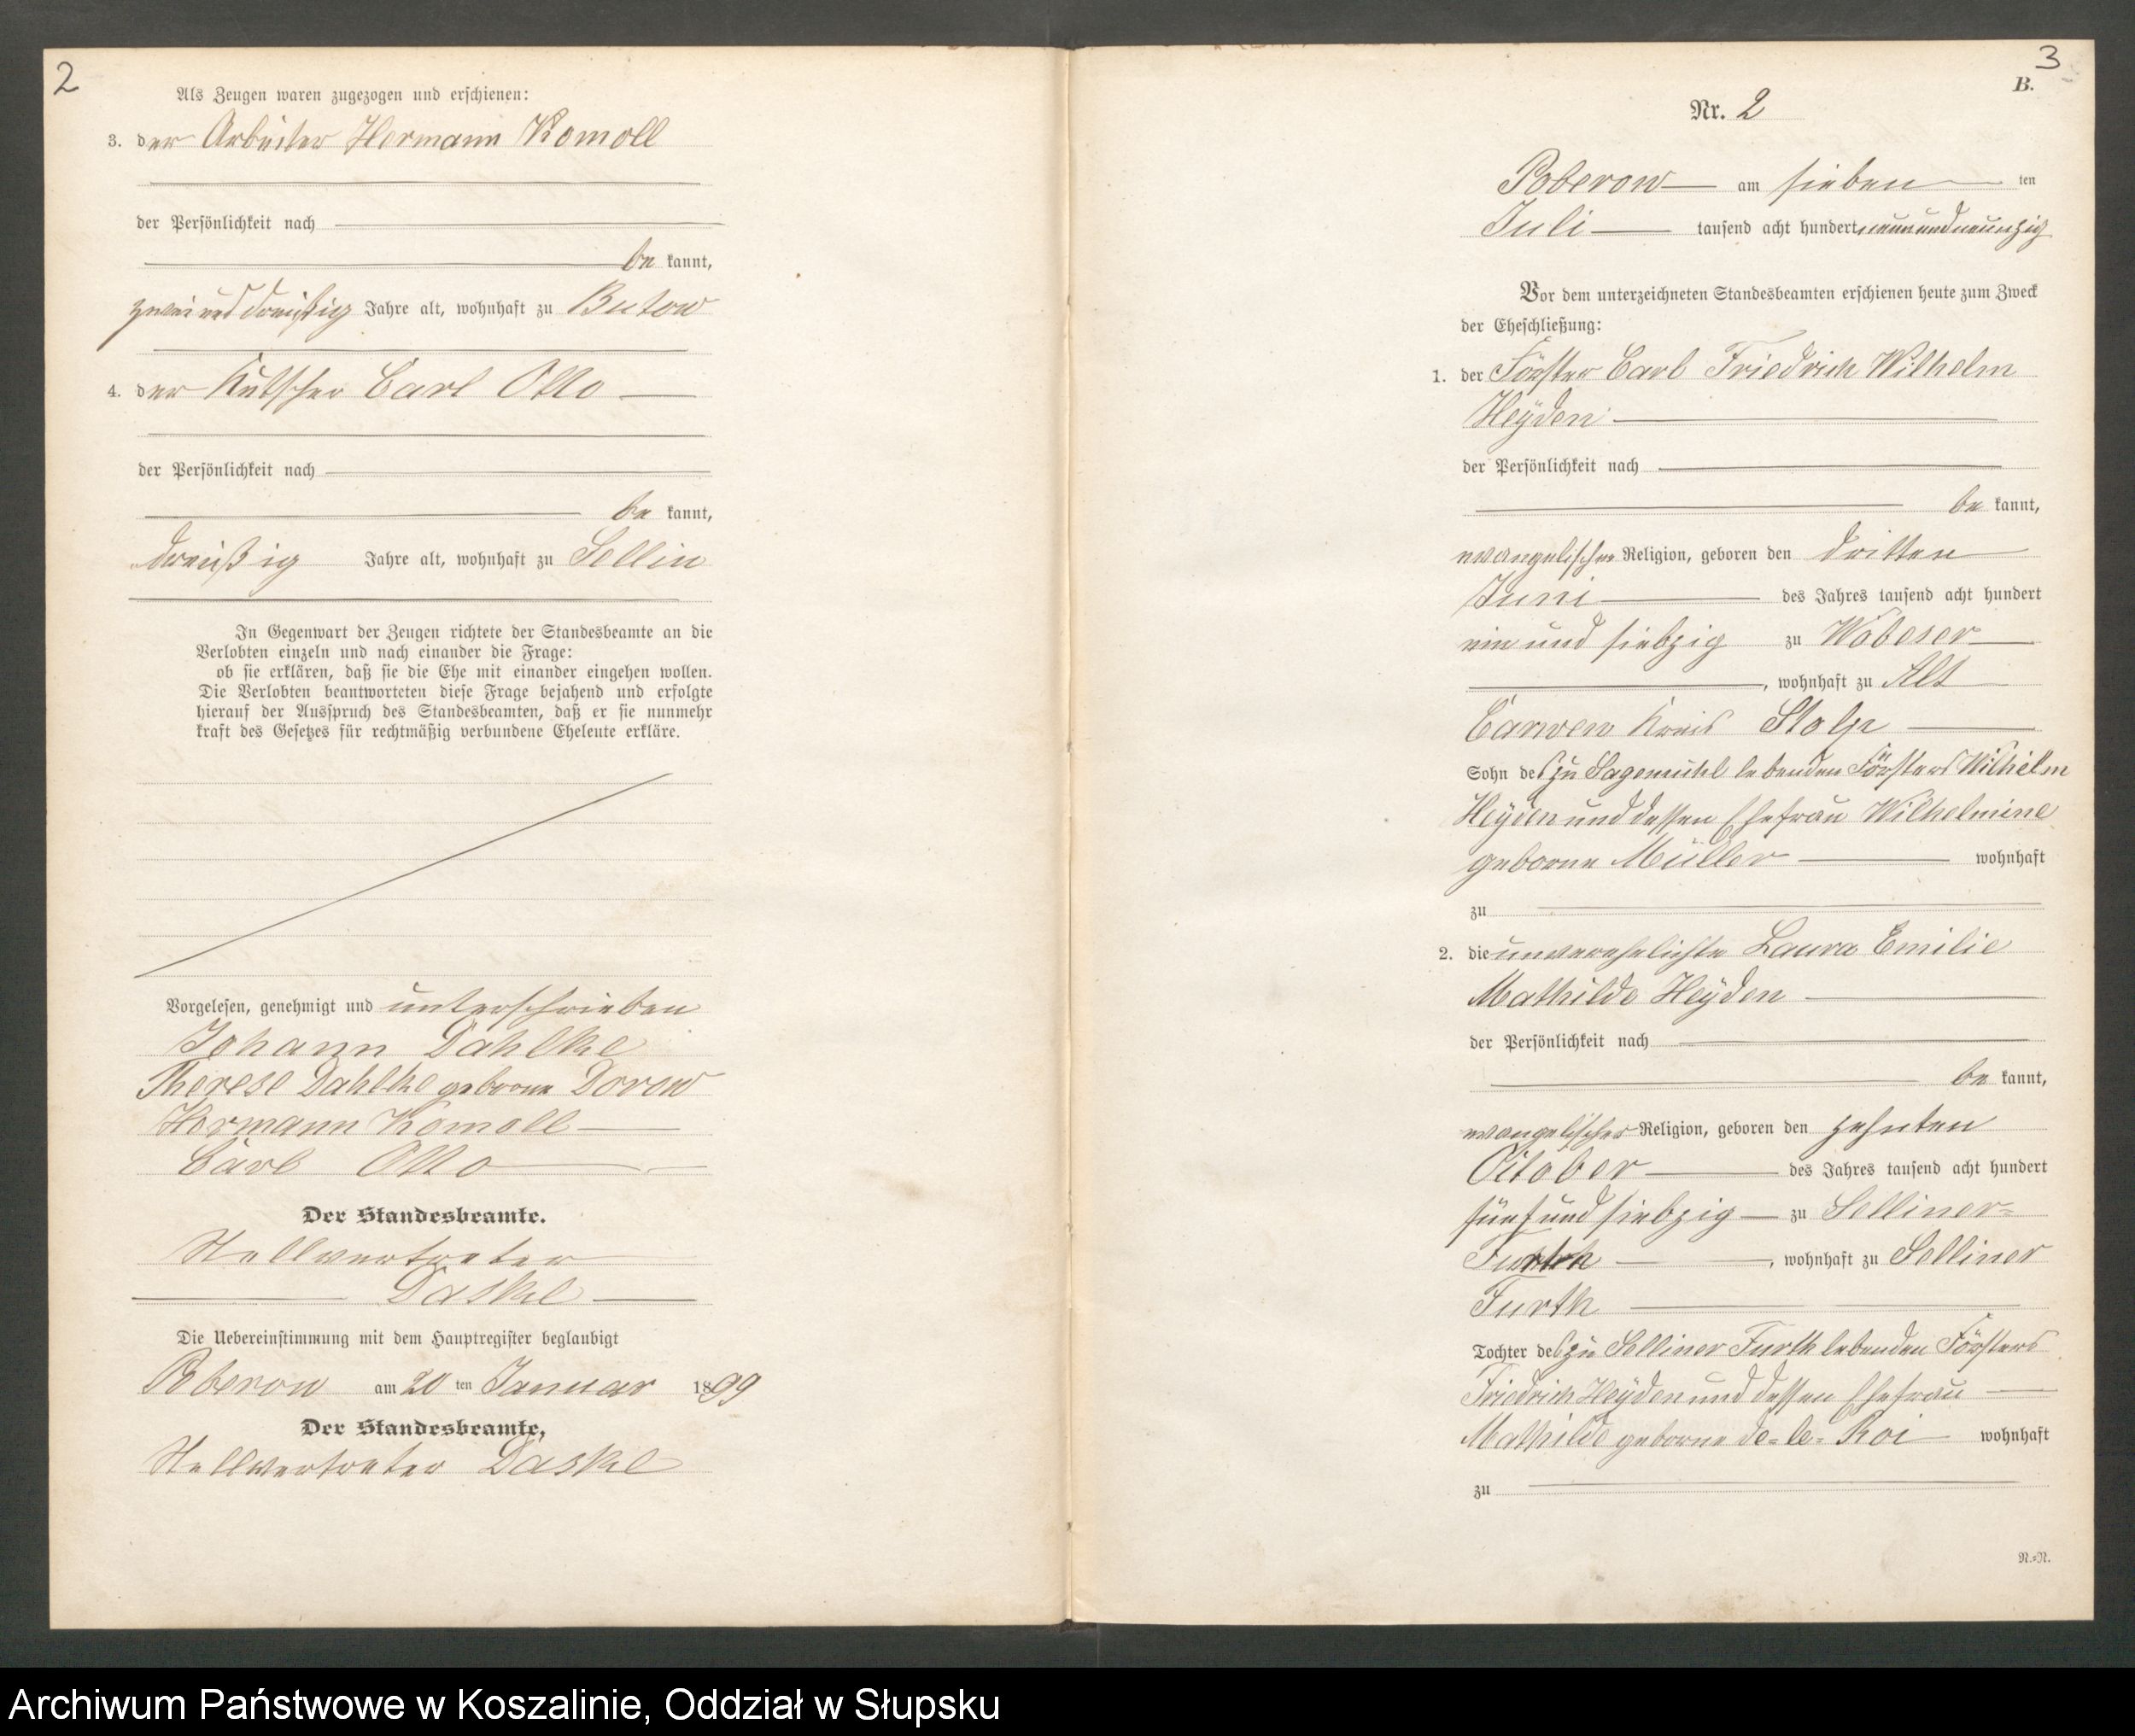 2
Als Zeugen waren zugezogen und erschienen:
3. der Arbeiter Hermann Komoll
der Persönlichkeit nach
be kannt,
zweiunddreißig Jahre alt, wohnhaft zu Butow
4. der Kutscher Carl Otto
der Persönlichkeit nach
be kannt,
dreißig Jahre alt, wohnhaft zu Sellin
In Gegenwart der Zeugen richtete der Standesbeamte an die
Verlobten einzeln und nach einander die Frage:
ob sie erklären, daß sie die Ehe mit einander eingehen wollen.
Die Verlobten beantworteten diese Frage bejahend und erfolgte
hierauf der Ausspruch des Standesbeamten, daß er sie nunmehr
kraft des Gesetzes für rechtmäßig verbundene Eheleute erkläre.
Vorgelesen, genehmigt und unterschrieben
Johann Dahlke
Therese Dahlke geborne Dorow
Hermann Komoll
Carl Otto
Der Standesbeamte.
Stellvertreter
Daske
Die Uebereinstimmung mit dem Hauptregister beglaubigt
Poberow am 20 ten Januar 1899
Der Standesbeamte,
Stellvertreter Daske
3
B.
Nr. 2
Poberow am sieben ten
Juli tausend acht hundert neunundneunzig
Vor dem unterzeichneten Standesbeamten erschienen heute zum Zweck
der Eheschließung:
1. der Förster Carl Friedrich Wilhelm
Heÿden
der Persönlichkeit nach
be kannt,
evangelischer Religion, geboren den dritten
Juni des Jahres tausend acht hundert
ein und siebzig zu Wobeser
, wohnhaft zu Alt
Carwen Kreis Stolp
Sohn des zu Sagemühl lebenden Försters Wilhelm
Heÿden und dessen Ehefrau Wilhelmine
geborne Müller wohnhaft
zu
2. die unverehelichte Laura Emilie
Mathilde Heÿden
der Persönlichkeit nach
be kannt,
evangelischer Religion, geboren den zehnten
October des Jahres tausend acht hundert
fünf und siebzig zu Selliner=
Furth , wohnhaft zu Selliner
Furth
Tochter des zu Selliner Furth lebenden Försters
Friedrich Heÿden und dessen Ehefrau
Mathilde geborne de=le=Roi wohnhaft
zu
N.=N.
Archiwum Państwowe w Koszalinie, Oddział w Słupsku